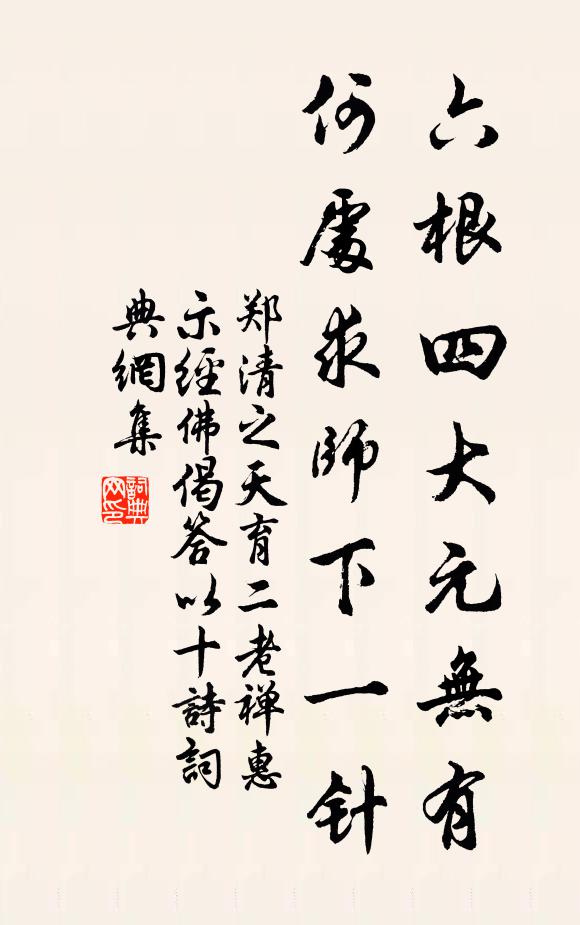 六根四大元無有
何處求師下一针
郑清之天育二老禅惠
示經佛偈答以十詩詞
典網集
詞典网印